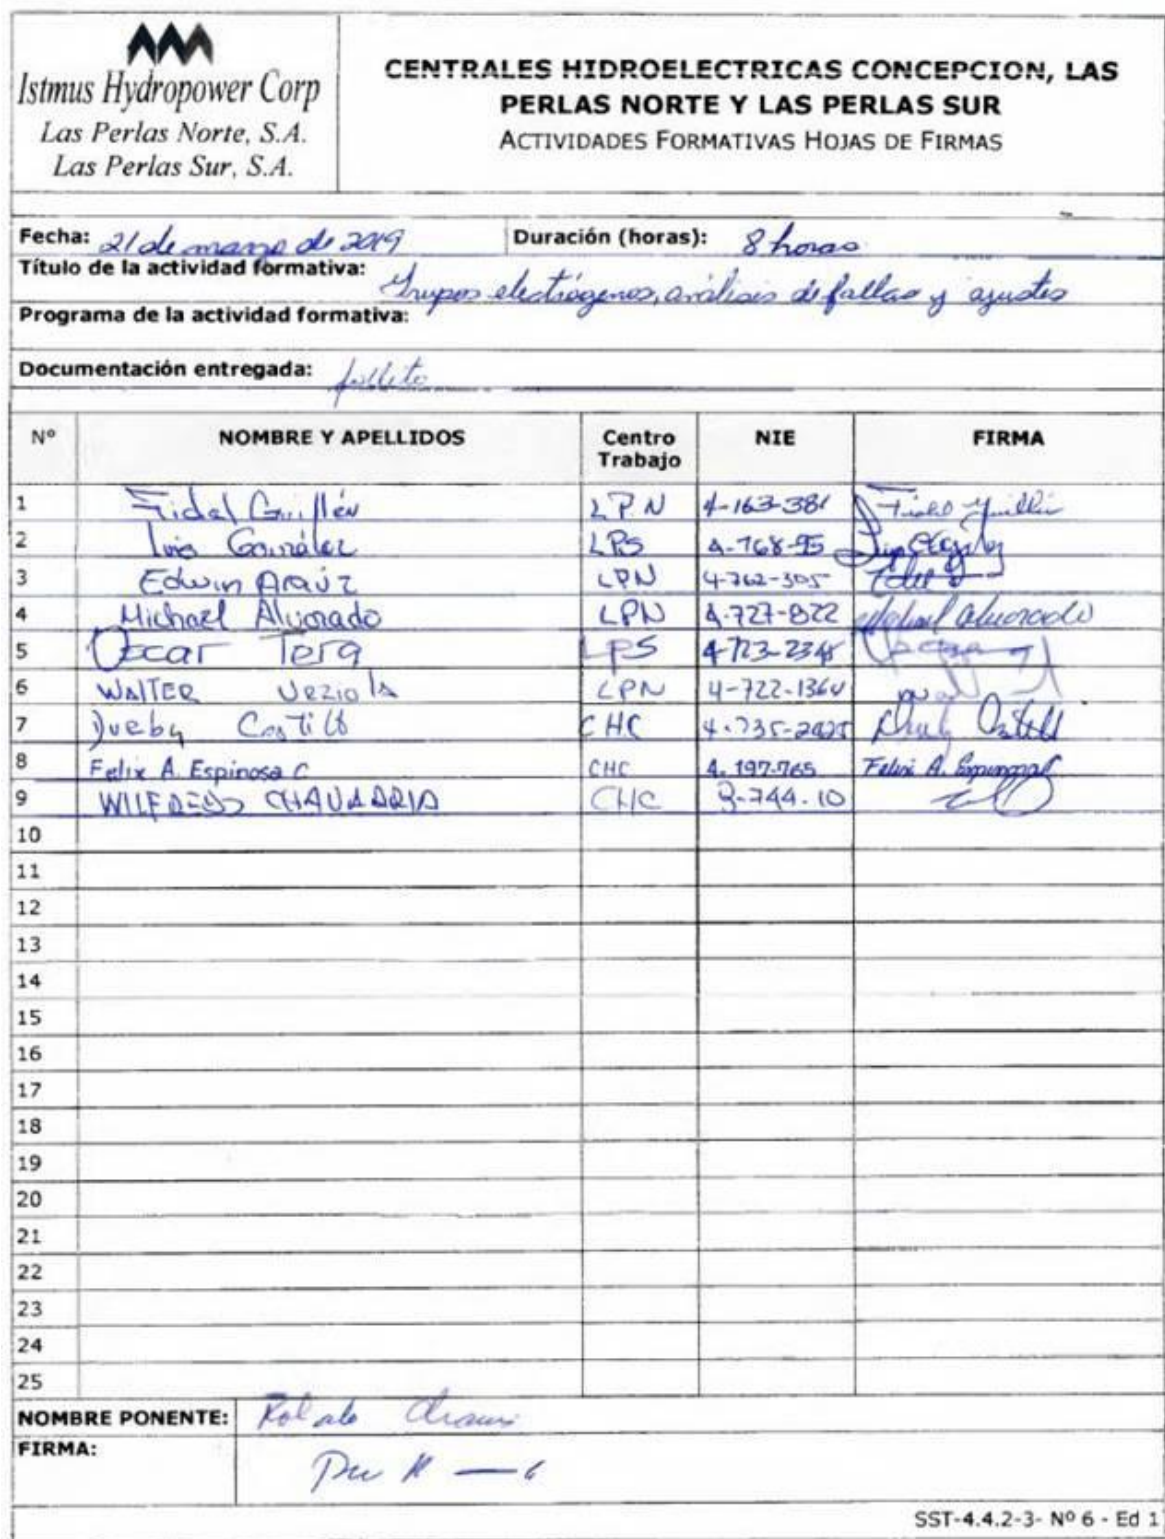 Istmus Hydropower Corp
Las Perlas Norte, S.A.
Las Perlas Sur, S.A.
CENTRALES HIDROELECTRICAS CONCEPCION, LAS
PERLAS NORTE Y LAS PERLAS SUR
ACTIVIDADES FORMATIVAS HOJAS DE FIRMAS
Fecha: 21 de marzo de 2019 Duración (horas): 8 horas
Título de la actividad formativa: Grupos electrógenos, análisis de fallas y ajustes
Programa de la actividad formativa:
Documentación entregada: folleto
Nº NOMBRE Y APELLIDOS Centro Trabajo NIE FIRMA
1 Fidel Guillén LPN 4-163-381 Fidel Guillén
2 Luis González LPS 4-768-95
3 Edwin Araúz LPN 4-762-305
4 Michael Alvarado LPN 4-727-822 Michael Alvarado
5 Oscar LPS
6 WALTER LPN 4-722-1364
7 Castillo CHC
8 Felix A. Espinosa C CHC 4.197-765 Felix A. Espinosa C
9 WILFREDO CHAVARRIA CHC
10
11
12
13
14
15
16
17
18
19
20
21
22
23
24
25
NOMBRE PONENTE:
FIRMA:
SST-4.4.2-3- Nº 6 - Ed 1